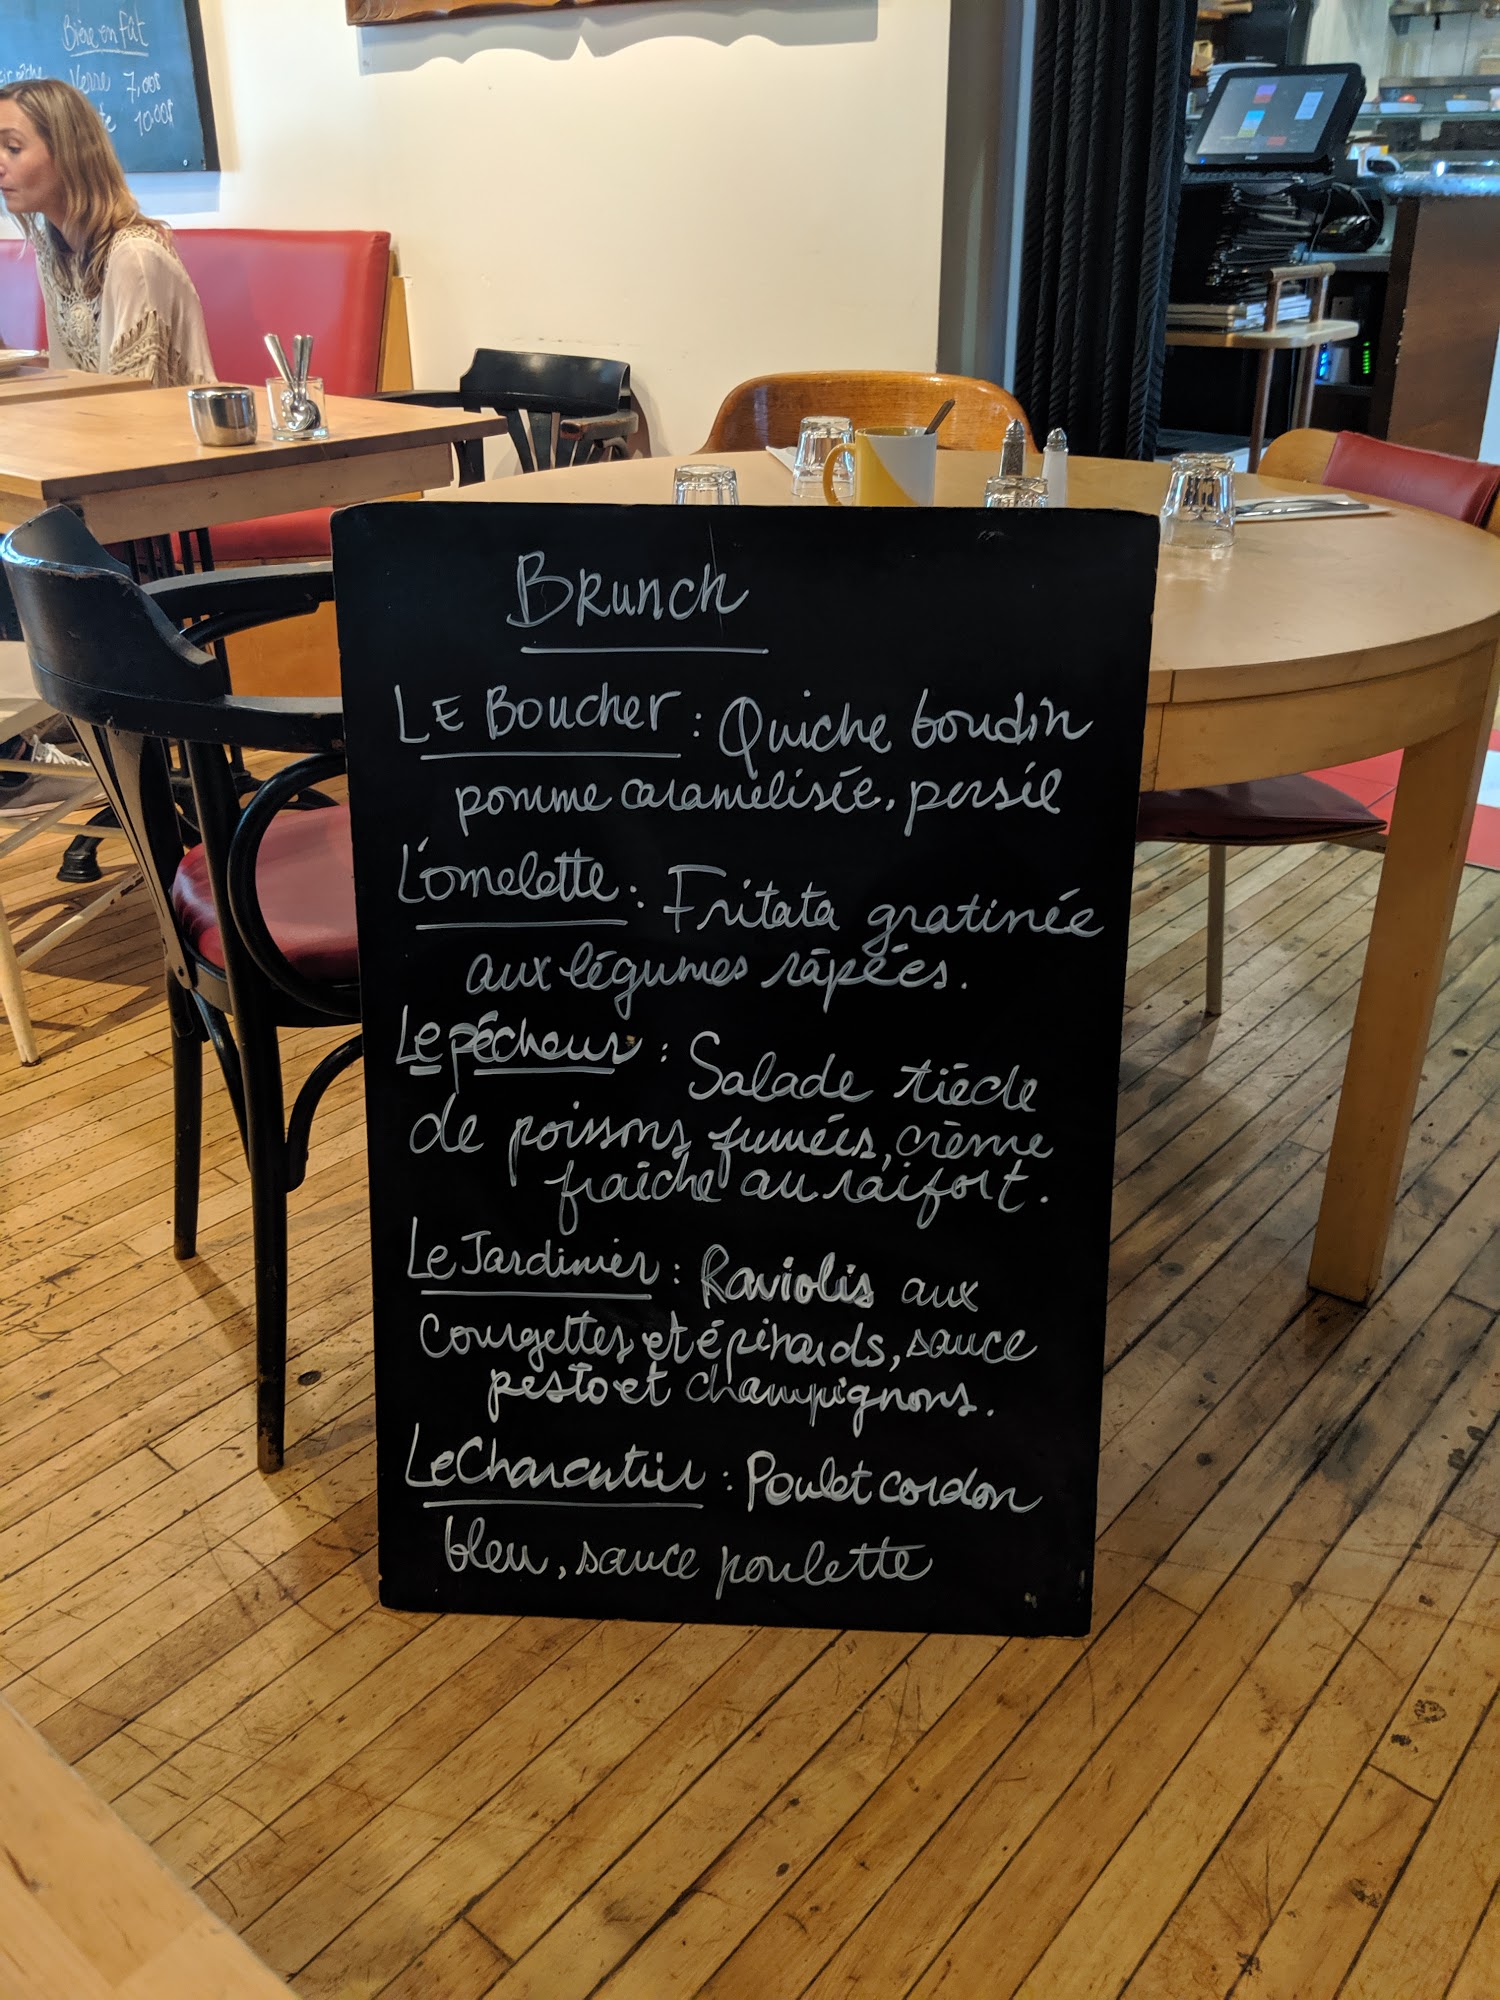 Bière en fût
Verre 7,00$
10.00$
Brunch
Le Boucher : Quiche boudin
pomme caramélisée, persil
L'omelette : Fritata gratinée
aux légumes râpées.
Le pêcheur : Salade tiède
de poissons fumées, crème
fraîche au raifort.
Le Jardinier : Raviolis aux
courgettes et épinards, sauce
pesto et champignons.
Le Charcutier : Poulet cordon
bleu, sauce poulette